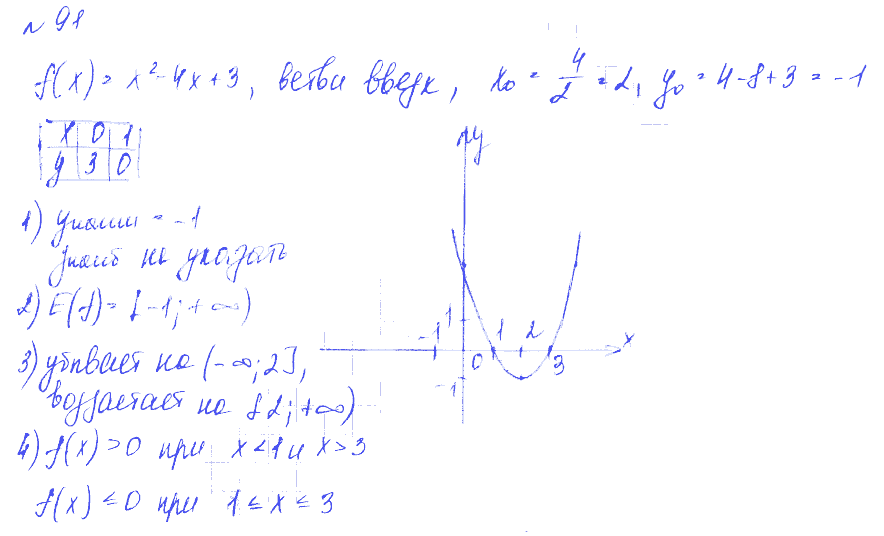 № 91
f(x) = x² - 4x + 3, ветви вверх, x₀ = 4/2 = 2, y₀ = 4 - 8 + 3 = -1
x 0 1
y 3 0
y
1) yнаим = -1
yнаиб не указать
2) E(f) = [-1; +∞)
1
-1 0 1 2 3 x
3) убывает на (-∞; 2],
-1
возрастает на [2; +∞)
4) f(x) > 0 при x < 1 и x > 3
f(x) ≤ 0 при 1 ≤ x ≤ 3